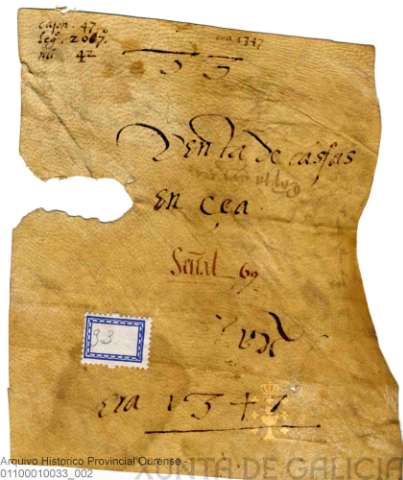 cajon. 47.
Leg. 2067.
nu 42
era 1347
33
Venta de casas
en cea
Señal 69
93
era 1347
Arquivo Historico Provincial Ourense -
01100010033_002
XUNTA DE GALICIA